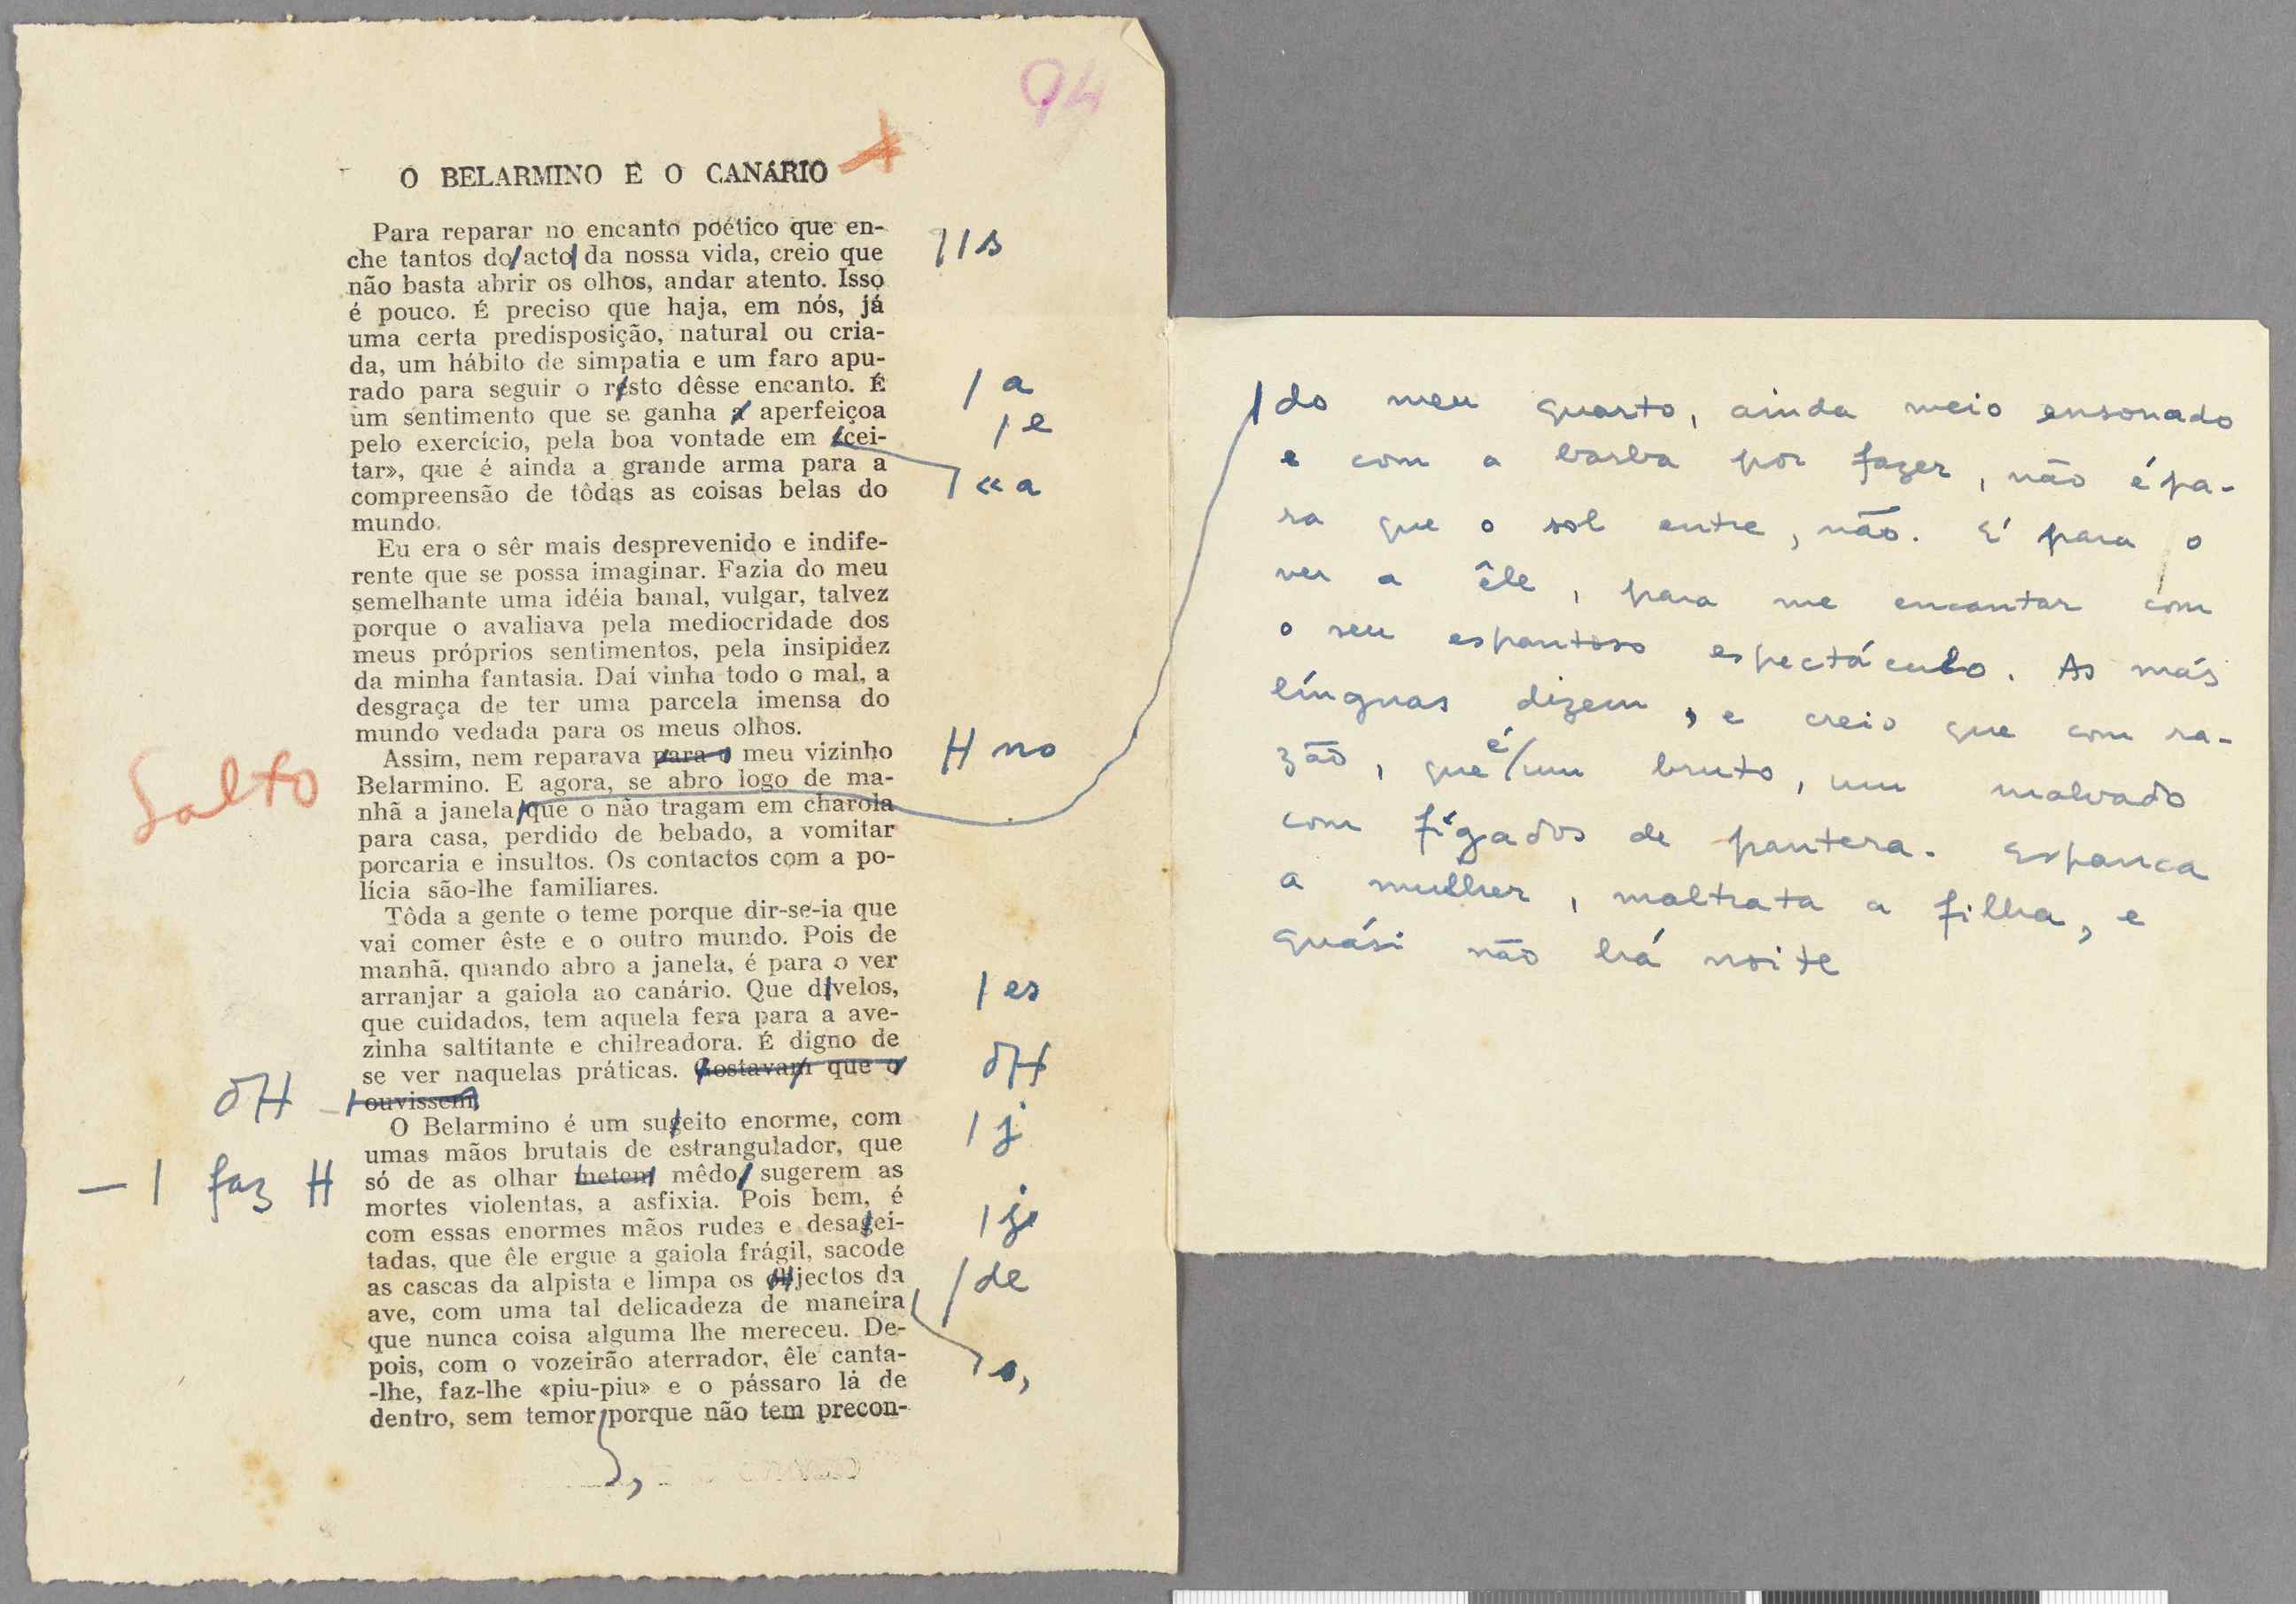 94
O BELARMINO E O CANÁRIO
Para reparar no encanto poético que en-
che tantos do acto da nossa vida, creio que
//s
não basta abrir os olhos, andar atento. Isso
é pouco. É preciso que haja, em nós, já
uma certa predisposição, natural ou cria-
da, um hábito de simpatia e um faro apu-
rado para seguir o resto dêsse encanto. É
/ a
um sentimento que se ganha a aperfeiçoa
/ e
pelo exercício, pela boa vontade em «cei-
tar», que é ainda a grande arma para a
« a
compreensão de tôdas as coisas belas do
mundo.
Eu era o sêr mais desprevenido e indife-
rente que se possa imaginar. Fazia do meu
semelhante uma idéia banal, vulgar, talvez
porque o avaliava pela mediocridade dos
meus próprios sentimentos, pela insipidez
da minha fantasia. Daí vinha todo o mal, a
desgraça de ter uma parcela imensa do
mundo vedada para os meus olhos.
Assim, nem reparava para o meu vizinho
H no
Salto
Belarmino. E agora, se abro logo de ma-
nhã a janela que o não tragam em charola
para casa, perdido de bebado, a vomitar
porcaria e insultos. Os contactos com a po-
lícia são-lhe familiares.
Tôda a gente o teme porque dir-se-ia que
vai comer êste e o outro mundo. Pois de
manhã, quando abro a janela, é para o ver
arranjar a gaiola ao canário. Que divelos,
/ es
que cuidados, tem aquela fera para a ave-
zinha saltitante e chilreadora. É digno de
se ver naquelas práticas. Gostavam que o
ouvissem.
O Belarmino é um sugeito enorme, com
/ j
umas mãos brutais de estrangulador, que
só de as olhar metem mêdo, sugerem as
— / faz H
mortes violentas, a asfixia. Pois bem, é
com essas enormes mãos rudes e desagei-
/ je
tadas, que êle ergue a gaiola frágil, sacode
as cascas da alpista e limpa os objectos da
/ de
ave, com uma tal delicadeza de maneira
s,
que nunca coisa alguma lhe mereceu. De-
pois, com o vozeirão aterrador, êle canta-
-lhe, faz-lhe «piu-piu» e o pássaro lá de
dentro, sem temor porque não tem precon-
,
/ do meu quarto, ainda meio ensonado
e com a barba por fazer, não é pa-
ra que o sol entre, não. É para o
ver a êle, para me encantar com
o seu espantoso espectáculo. As más
línguas dizem, e creio que com ra-
zão, que é um bruto, um malvado
com fígados de pantera. Espanca
a mulher, maltrata a filha, e
quási não há noite